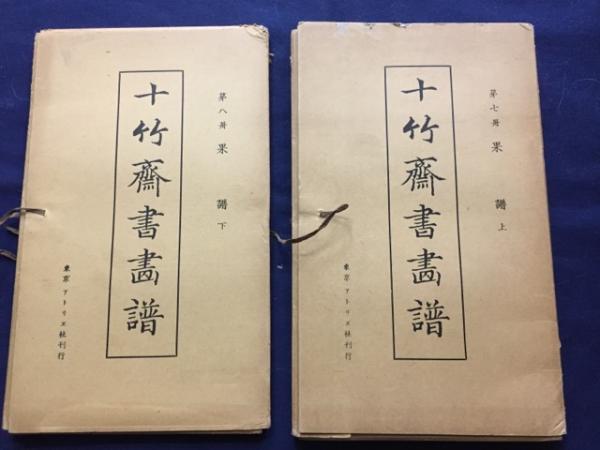 第七冊 果譜 上
十竹齋書畫譜
東京 アトリエ社刊行
第八冊 果譜 下
十竹齋書畫譜
東京 アトリエ社刊行